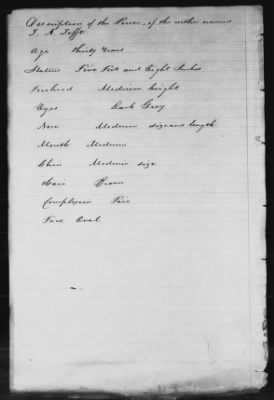 Description of the Person, of the within named
T. A. Tefft
Age thirty Years
Stature Five Feet and Eight Inches
Forehead Medium height
Eyes Dark Gray
Nose Medium size and length
Mouth Medium
Chin Medium size
Hair Brown
Complexion Fair
Face Oval